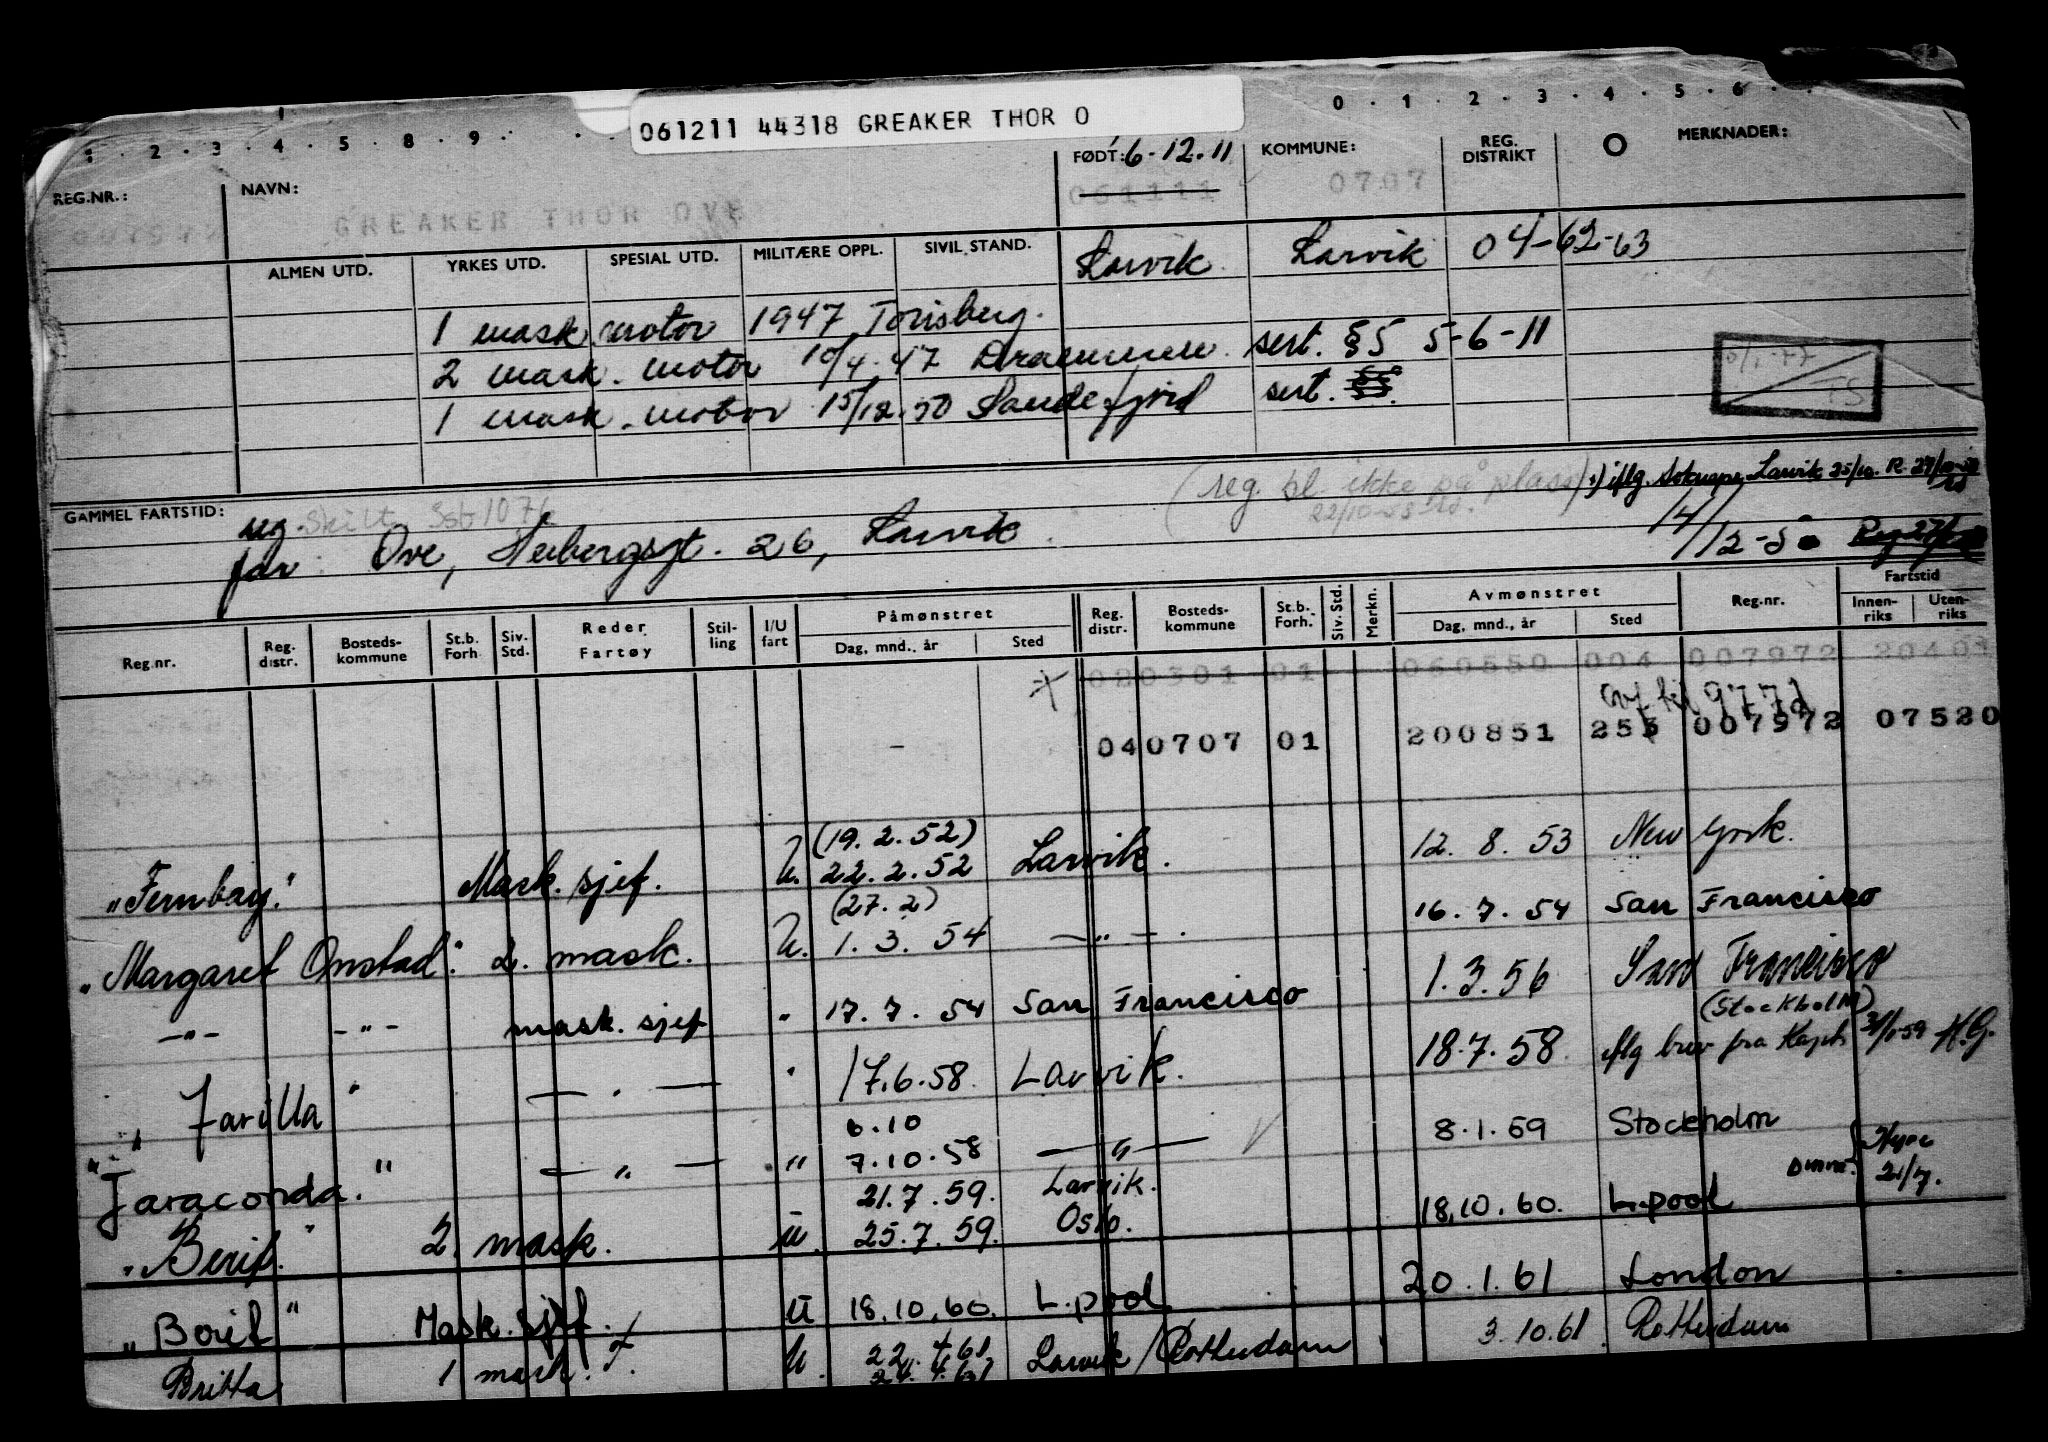 061211 44318 GREAKER THOR O
1
1 . 2 . 3 . 4 . 5 . 8 . 9 . 0 . 1 . 2 . 3 . 4 . 5 . 6 .
REG.NR.: NAVN: FØDT: 6-12.11 KOMMUNE: REG. DISTRIKT MERKNADER:
007972 GREAKER THOR OVE 061111 0707
ALMEN UTD. YRKES UTD. SPESIAL UTD. MILITÆRE OPPL. SIVIL STAND. Larvik Larvik 04-62-63
1 mask. motor 1947 Tønsberg.
2 mask. motor 10/4.47 Drammen. sert. §5 5-6-11
1 mask. motor 15/12.50 Sandefjord sert.
TS
(reg. bl. ikke på plass) iflg. Larvik 25/10.
22/10-
GAMMEL FARTSTID: reg. skilt 1076
far: Ove, gt. 26, Larvik. 14/12-50
Reg.nr. Reg. distr. Bosteds-kommune St.b. Forh. Siv. Std. Reder Fartøy Stil-ling I/U fart Påmønstret Dag, mnd., år Sted Reg. distr. Bosteds-kommune St.b. Forh. Siv. Std. Merkn. Avmønstret Dag, mnd., år Sted Reg.nr. Fartstid Innen-riks Uten-riks
020301 01 060550 004 007972 20401
040707 01 200851 255 007972 07520
"Fernbay." Mask. sjef. U. (19.2.52) 22.2.52 Larvik. 12. 8. 53 New York.
"Margaret Onstad". 2. mask. U. (27.2) 1. 3. 54 — " — . 16. 7. 54 San Francisco
— " — — " — mask. sjef " 17. 7. 54 San Francisco 1.3.56 San Francisco
(Stockholm)
" Jarilla " — " — " 17.6.58. Larvik. 18.7.58. iflg brev fra H.G.
"Jaraconda." — " — " 6.10 7.10.58 — " — 8.1.59 Stockholm
"Berit." 2. mask. U. 21.7.59. Larvik. 25.7.59. Oslo. 18.10.60. L.pool 21/7.
"Borit" Mask. sjef. U 18.10.60. L.pool 20.1.61 London
Britta 1 mask. U. 22.4.61 24.4.61 Larvik/Rotterdam 3.10.61. Rotterdam